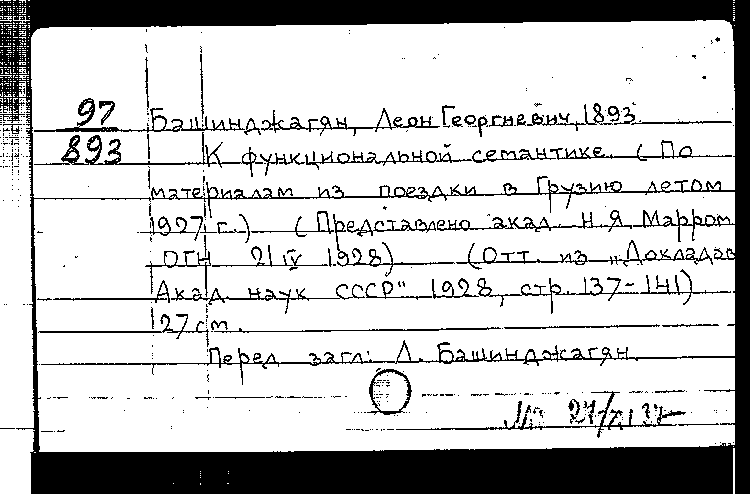 97
893
Башинджагян, Леон Георгиевич, 1893
К функциональной семантике. (По
материалам из поездки в Грузию летом
1927 г.) (Представлено акад. Н.Я. Марром
ОГН 21 IV 1928) (Отт. из „Докладов
Акад. наук СССР" 1928, стр. 137-141)
27 cm.
Перед загл: Л. Башинджагян.
27/XI 37